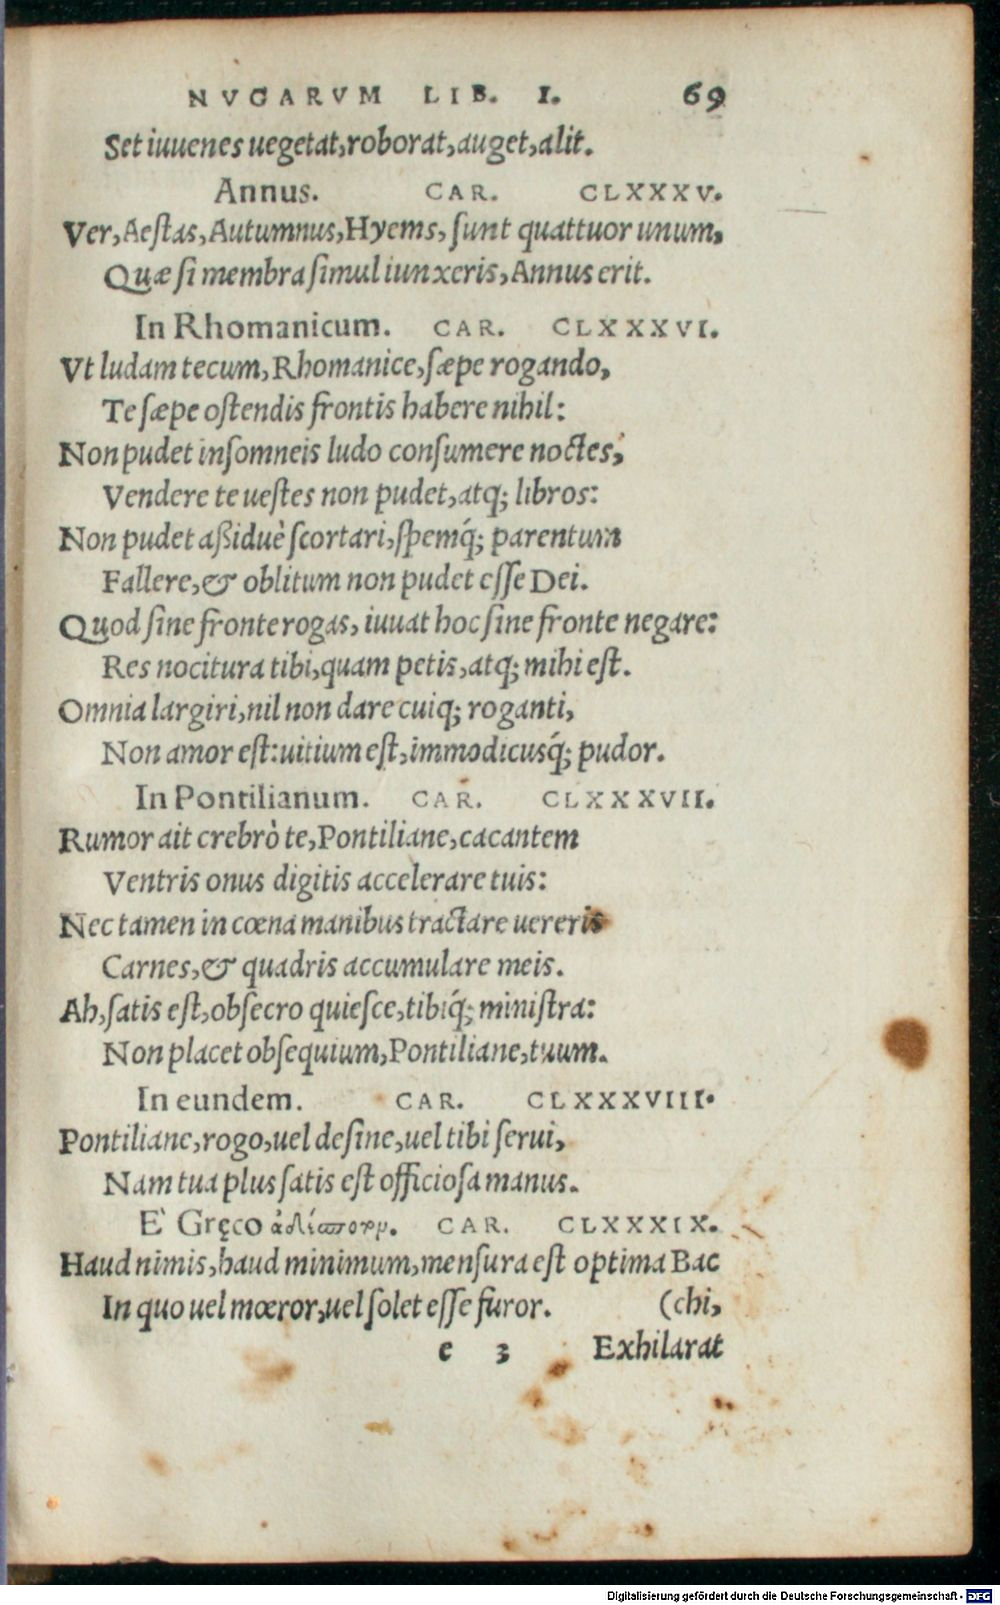 NVGARVM LIB. I. 69
Set iuuenes uegetat, roborat, auget, alit.
Annus. CAR. CLXXXV.
Ver, Aestas, Autumnus, Hyems, sunt quattuor unum,
Quæ si membra simul iunxeris, Annus erit.
In Rhomanicum. CAR. CLXXXVI.
Vt ludam tecum, Rhomanice, sæpe rogando,
Te sæpe ostendis frontis habere nihil:
Non pudet insomneis ludo consumere noctes,
Vendere te uestes non pudet, atq; libros:
Non pudet aßiduè scortari, spemq́; parentum
Fallere, & oblitum non pudet esse Dei.
Quod sine fronte rogas, iuuat hoc sine fronte negare:
Res nocitura tibi, quam petis, atq; mihi est.
Omnia largiri, nil non dare cuiq; roganti,
Non amor est: uitium est, immodicusq́; pudor.
In Pontilianum. CAR. CLXXXVII.
Rumor ait crebrò te, Pontiliane, cacantem
Ventris onus digitis accelerare tuis:
Nec tamen in cœna manibus tractare uereris
Carnes, & quadris accumulare meis.
Ah, satis est, obsecro quiesce, tibiq́; ministra:
Non placet obsequium, Pontiliane, tuum.
In eundem. CAR. CLXXXVIII.
Pontiliane, rogo, uel desine, uel tibi serui,
Nam tua plus satis est officiosa manus.
E' Gręco CAR. CLXXXIX.
Haud nimis, haud minimum, mensura est optima Bac
In quo uel mœror, uel solet esse furor. (chi,
e 3 Exhilarat
Digitalisierung gefördert durch die Deutsche Forschungsgemeinschaft - DFG